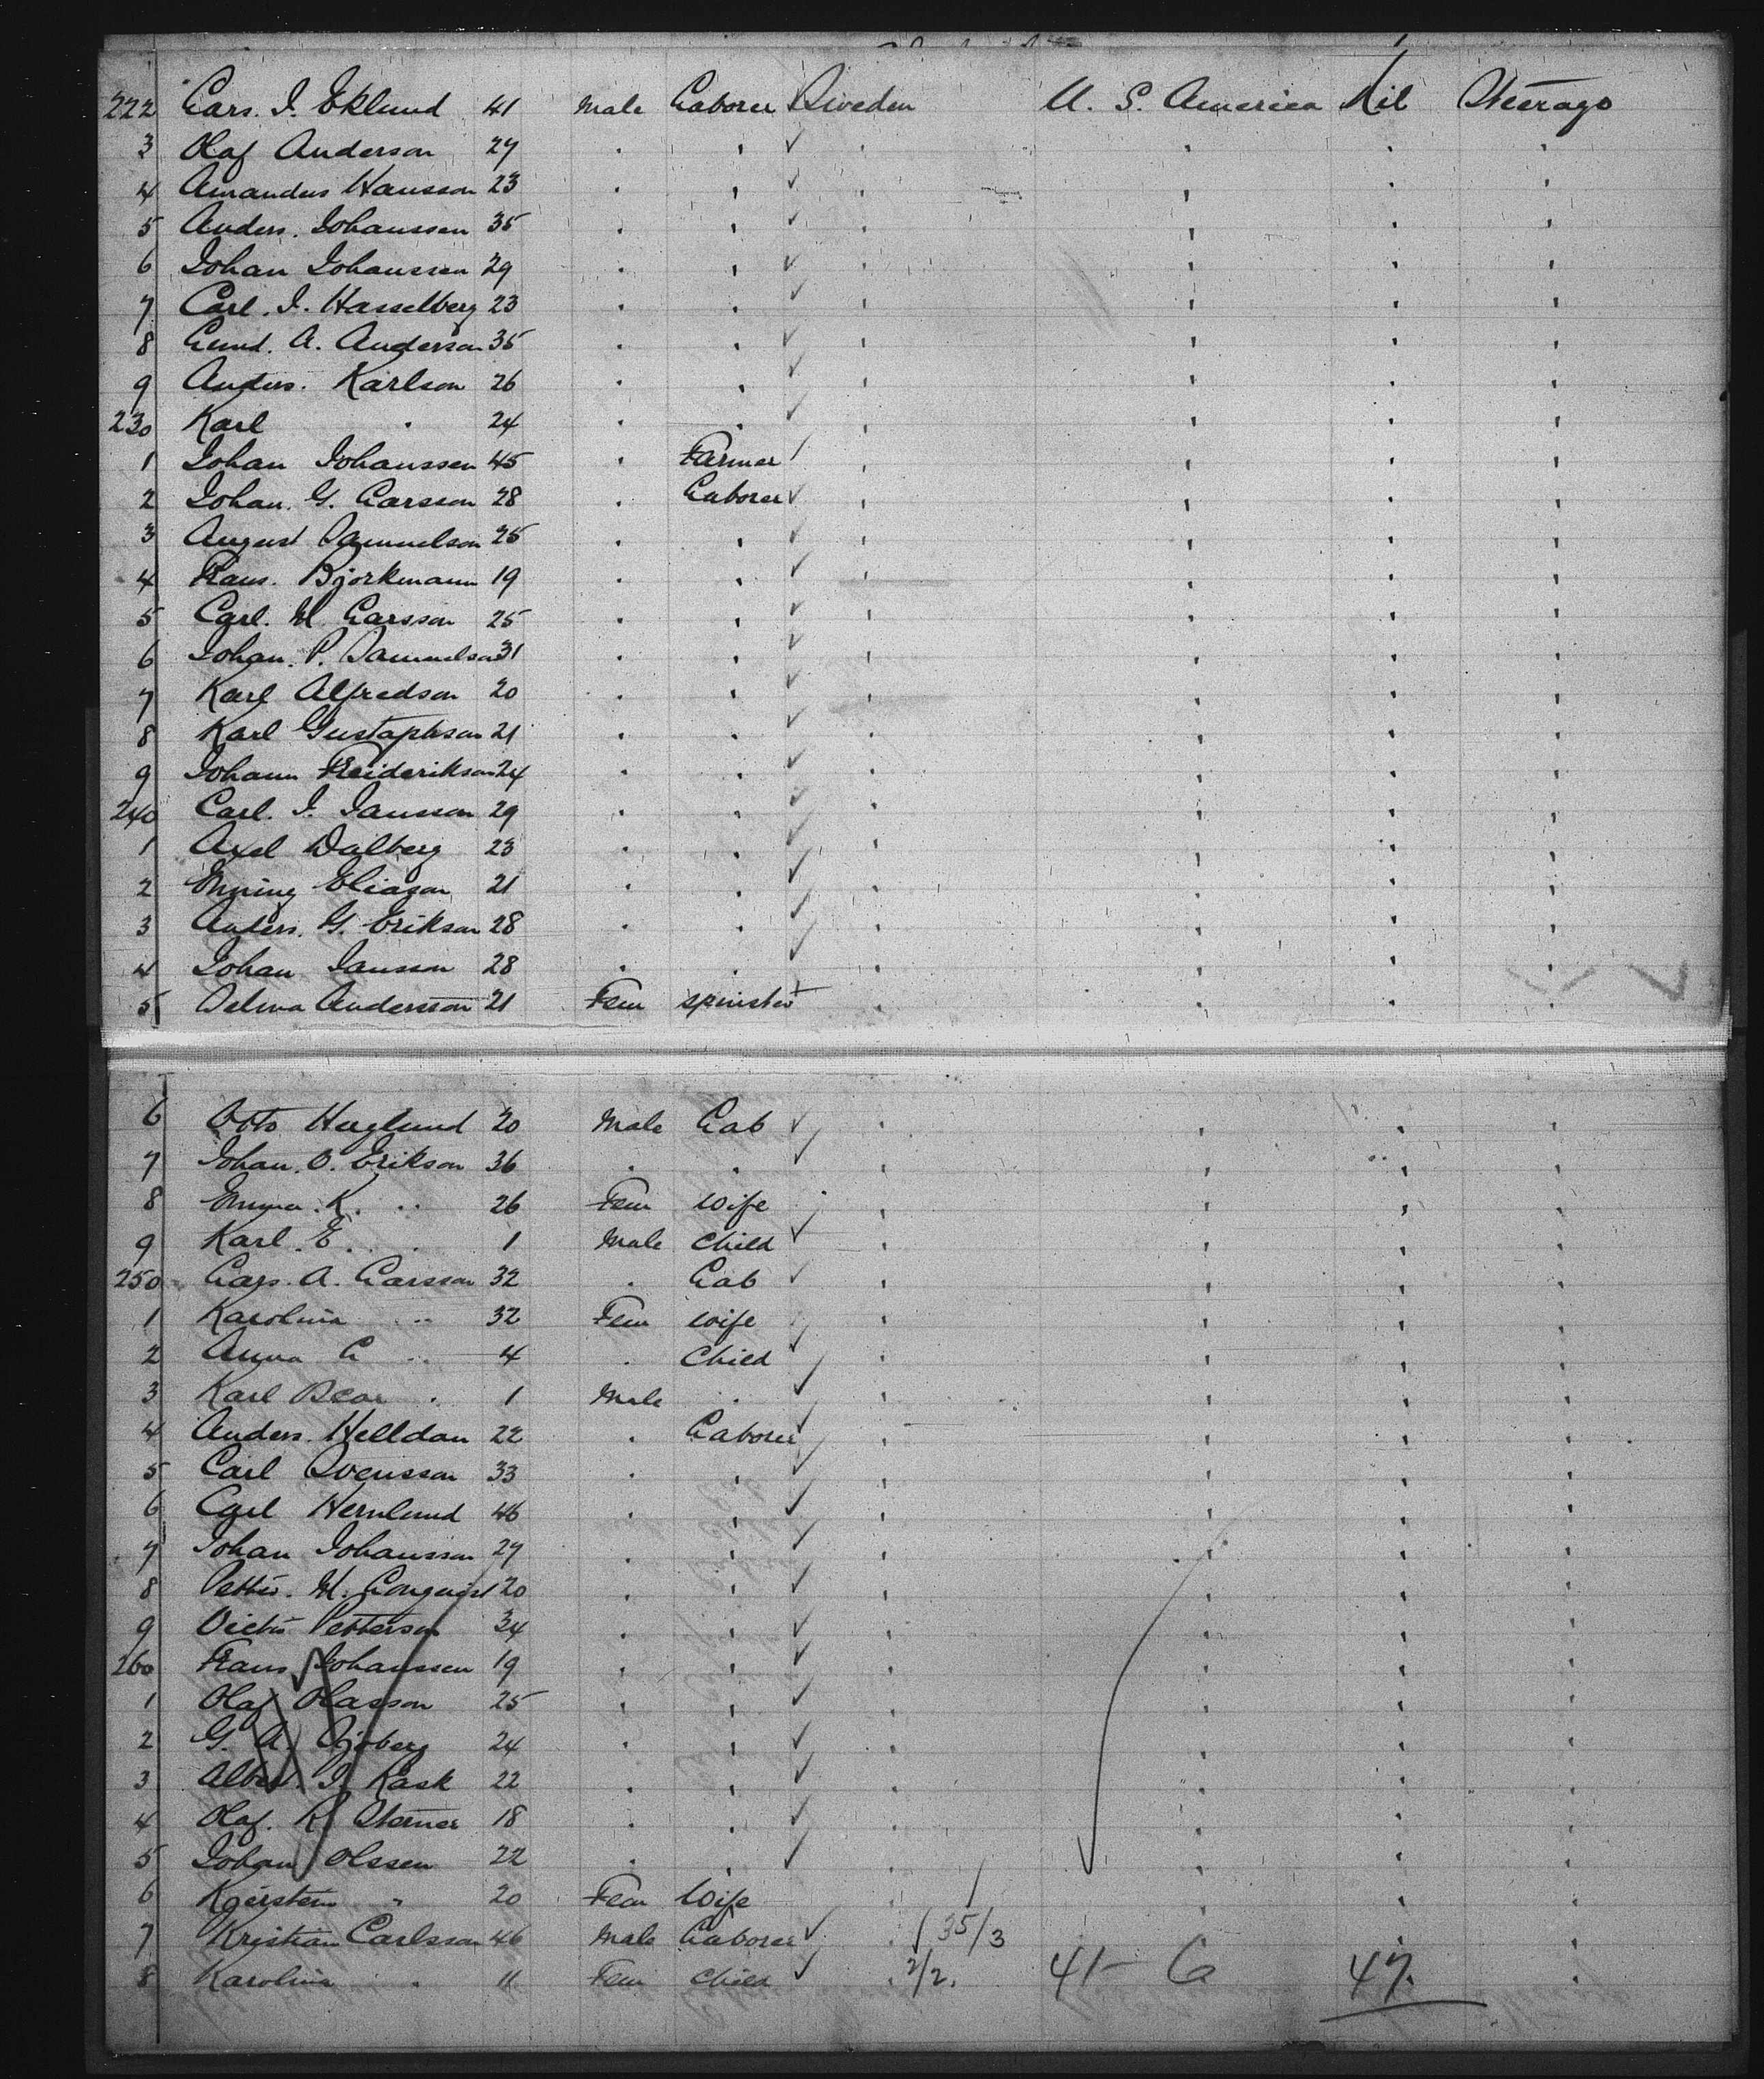 222 Lars. I. Eklund 41 Male Laborer Sweden U. S. America Nil Steerage
3 Olaf Anderson 27 " " ✓ " " " "
4 Amandus Hansson 23 " " ✓ " " " "
5 Anders. Johanssen 35 " " ✓ " " " "
6 Johan Johanssen 29 " " ✓ " " " "
7 Carl. I. Hasselberg 23 " " ✓ " " " "
8 A. Anderson 35 " " ✓ " " " "
9 Anders. Karlson 26 " " ✓ " " " "
230 Karl " 24 " " ✓ " " " "
1 Johan Johanssen 45 " Farmer / " " " "
2 Johan. G. Larsson 28 " Laborer ✓ " " " "
3 August Samuelson 25 " " ✓ " " " "
4 Frans. Bjorkmann 19 " " ✓ " " " "
5 Carl. M. Larsson 25 " " ✓ " " " "
6 Johan. P. Samuelson 31 " " ✓ " " " "
7 Karl Alfredson 20 " " ✓ " " " "
8 Karl Gustaphson 21 " " ✓ " " " "
9 Johann Freiderikson 24 " " ✓ " " " "
240 Carl. I. Jansson 29 " " ✓ " " " "
1 Axel Dalberg 23 " " ✓ " " " "
2 Eliason 21 " " ✓ " " " "
3 Anders. G. Erikson 28 " " ✓ " " " "
4 Johan Jansson 28 " " ✓ " " " "
5 Selma Andersson 21 Fem spinster " " " "
6 Otto Haglund 20 Male Lab ✓ " " " "
7 Johan. O. Erikson 36 " " ✓ " " " "
8 Emma. K. " 26 Fem Wife " " " "
9 Karl. E. " 1 Male Child ✓ " " " "
250 Lars. A. Larsson 32 " Lab ✓ " " " "
1 Karolina " 32 Fem wife " " " "
2 Anna L " 4 " Child ✓ " " " "
3 Karl " 1 Male " ✓ " " " "
4 Anders. Helldan 22 " Laborer ✓ " " " "
5 Carl Svensson 33 " " ✓ " " " "
6 Carl Hernlund 46 " " ✓ " " " "
7 Johan Johansson 27 " " ✓ " " " "
8 M. Lonquist 20 " " ✓ " " " "
9 Victor Petterson 34 " " ✓ " " " "
260 Frans Johanssen 19 " " ✓ " " " "
1 Olaf Olasson 25 " " ✓ " " " "
2 G. A. Sjoberg 24 " " ✓ " " " "
3 Albert. I. Rask 22 " " ✓ " " " "
4 Olaf. R. Sterner 18 " " ✓ " " " "
5 Johan Olssen 22 " " ✓ " " " "
6 Kjersten " 20 Fem Wife " " " "
7 Kristian Carlsson 46 Male Laborer ✓ " 35/3 " " "
8 Karolina " 11 Fem Child ✓ " 2/2. 41 - 6 47. "